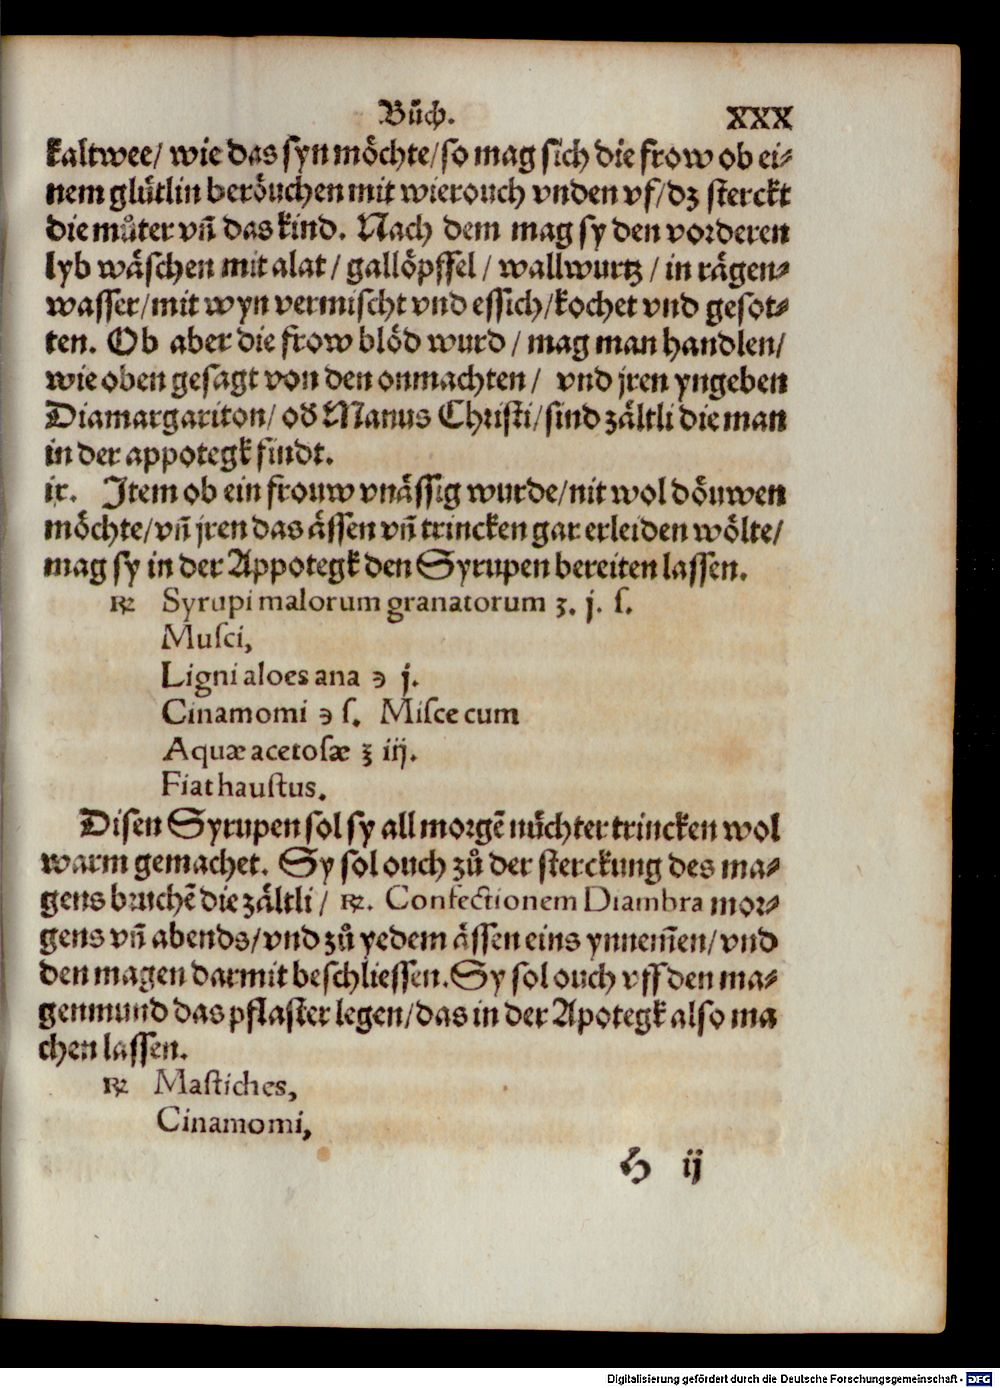 Bůch. XXX
kaltwee/ wie das syn möchte/ so mag sich die frow ob ei⸗
nem glůtlin beröuchen mit wierouch vnden vf/ dz sterckt
die můter vn̄ das kind. Nach dem mag sy den vorderen
lyb wäschen mit alat / gallöpffel / wallwurtz / in rägen⸗
wasser/ mit wyn vermischt vnd essich/ kochet vnd gesot⸗
ten. Ob aber die frow blöd wurd / mag man handlen/
wie oben gesagt von den onmachten / vnd jren yngeben
Diamargariton/ oď Manus Christi/ sind zältli die man
in der appotegk findt.
ix. Item ob ein frouw vnässig wurde/ nit wol döuwen
möchte/ vn̄ jren das ässen vn̄ trincken gar erleiden wölte/
mag sy in der Appotegk den Syrupen bereiten lassen.
℞ Syrupi malorum granatorum ʒ. j. ſ.
Muſci,
Ligni aloes ana ℈ j.
Cinamomi ℈ ſ. Miſce cum
Aquæ acetoſæ ʒ iij.
Fiat hauſtus.
Disen Syrupen sol sy all morgē nůchter trincken wol
warm gemachet. Sy sol ouch zů der sterckung des ma⸗
gens bruchē die zältli / ℞. Confectionem Diambra mor⸗
gens vn̄ abends/ vnd zů yedem ässen eins ynnem̄en/ vnd
den magen darmit beschliessen. Sy sol ouch vff den ma⸗
genmund das pflaster legen/ das in der Apotegk also ma
chen lassen.
℞ Maſtiches,
Cinamomi,
H ij
Digitalisierung gefördert durch die Deutsche Forschungsgemeinschaft - DFG